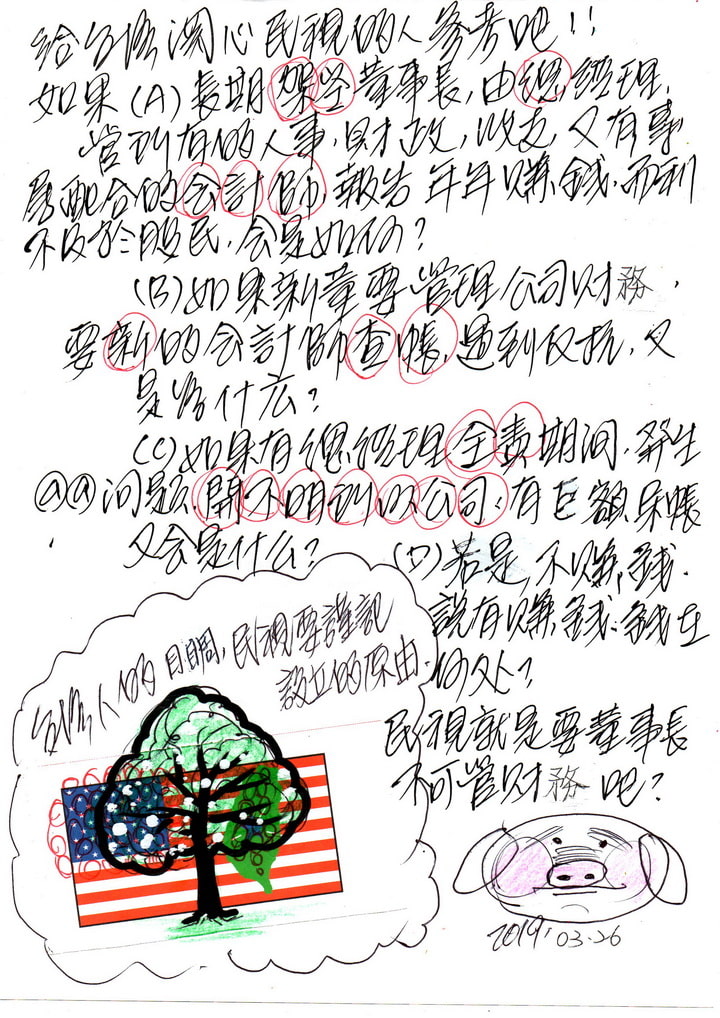 給台灣關心民視的人參考吧!!
如果(A)長期架空董事長,由總經理,
管所有的人事,財政,收支,又有事
務配合的会計師,報告年年賺錢,而利
不及於股民,会是如何?
(B)如果新董要管理公司財務,
要新的会計師查帳,遇到反抗,又
是為什広?
(C)如果有總經理全責期间,發生
@@问題,開不明到以公司,有巨額呆帳
又会是什么?
(D)若是不賺錢,
說有賺錢,錢在
何处?
民視就是要董事長
不可管財務吧?
台灣人的目睭,民視要謹記
設立的原由.
2019.03.26